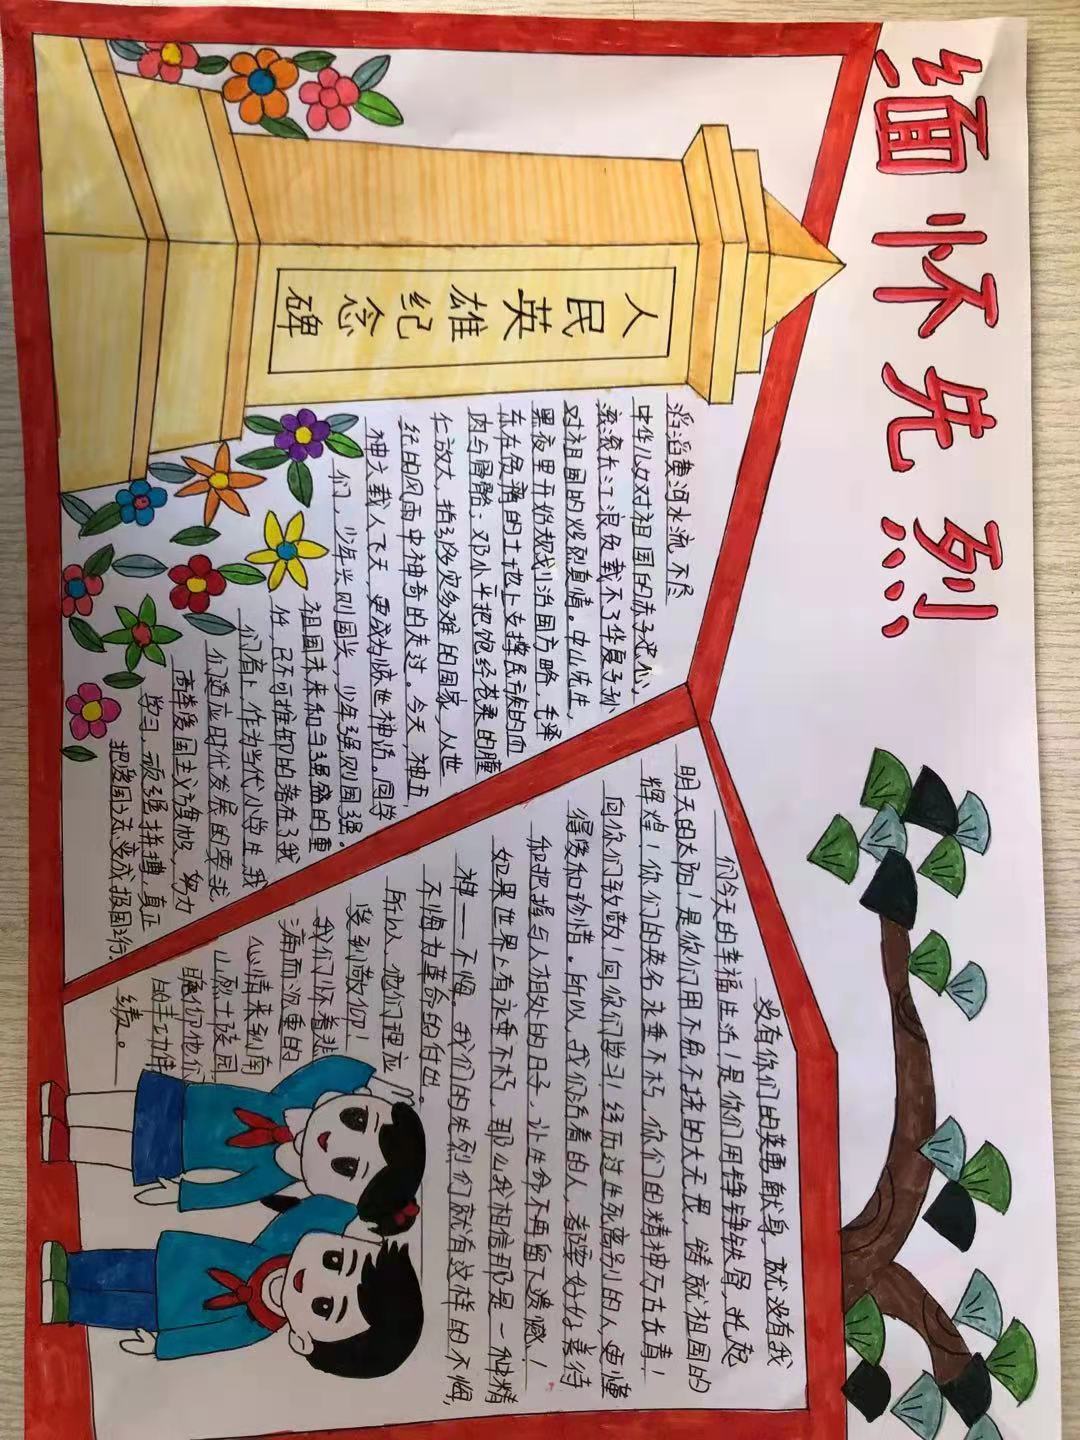 缅怀先烈
人民英雄纪念碑
滔滔黄河水流不尽
中华儿女对祖国的赤子忠心,
滚滚长江浪负载不了华夏子孙
对祖国的炽烈真情。中山先生,
黑夜里开始规划治国方略,毛泽
东在色的土地上支撑民族的血
肉与骨骼;邓小平把饱经苍桑的瞳
仁放大,指引多灾多难的国家,从世
纪的风雨中神奇的走过。今天,神五,
神六载人飞天,更成为惊世神话。同学
们,少年兴则国兴,少年强则国强。
祖国未来和与强盛的重
任,已不可推卸的落在了我
们肩上,作为当代小学生,我
们适应时代发展的要求,
高举爱国主义旗帜,努力
学习,顽强拼搏,真正
把爱国之志变成报国之行。
没有你们的英勇献身,就没有我
们今天的幸福生活!是你们用铮铮铁骨,托起
明天的太阳!是你们用不屈不挠的大无畏,铸就祖国的
辉煌!你们的英名永垂不朽,你们的精神万古长青!
向你们致敬!向你们学习!经历过生死离别的人,更懂
得爱和珍惜。所以,我们活着的人,都要好好善待
和把握与人相处的日子,让生命不再留下遗憾!
如果世界上有永垂不朽,那么我相信那是一种精
神——不悔。我们的先烈们就有这样的不悔,
不悔为革命的付出。
所以,他们理应
受到敬仰!
我们怀着悲
痛而沉重的
心情来到南
山烈士陵园
瞻仰他们
的丰功伟
绩。